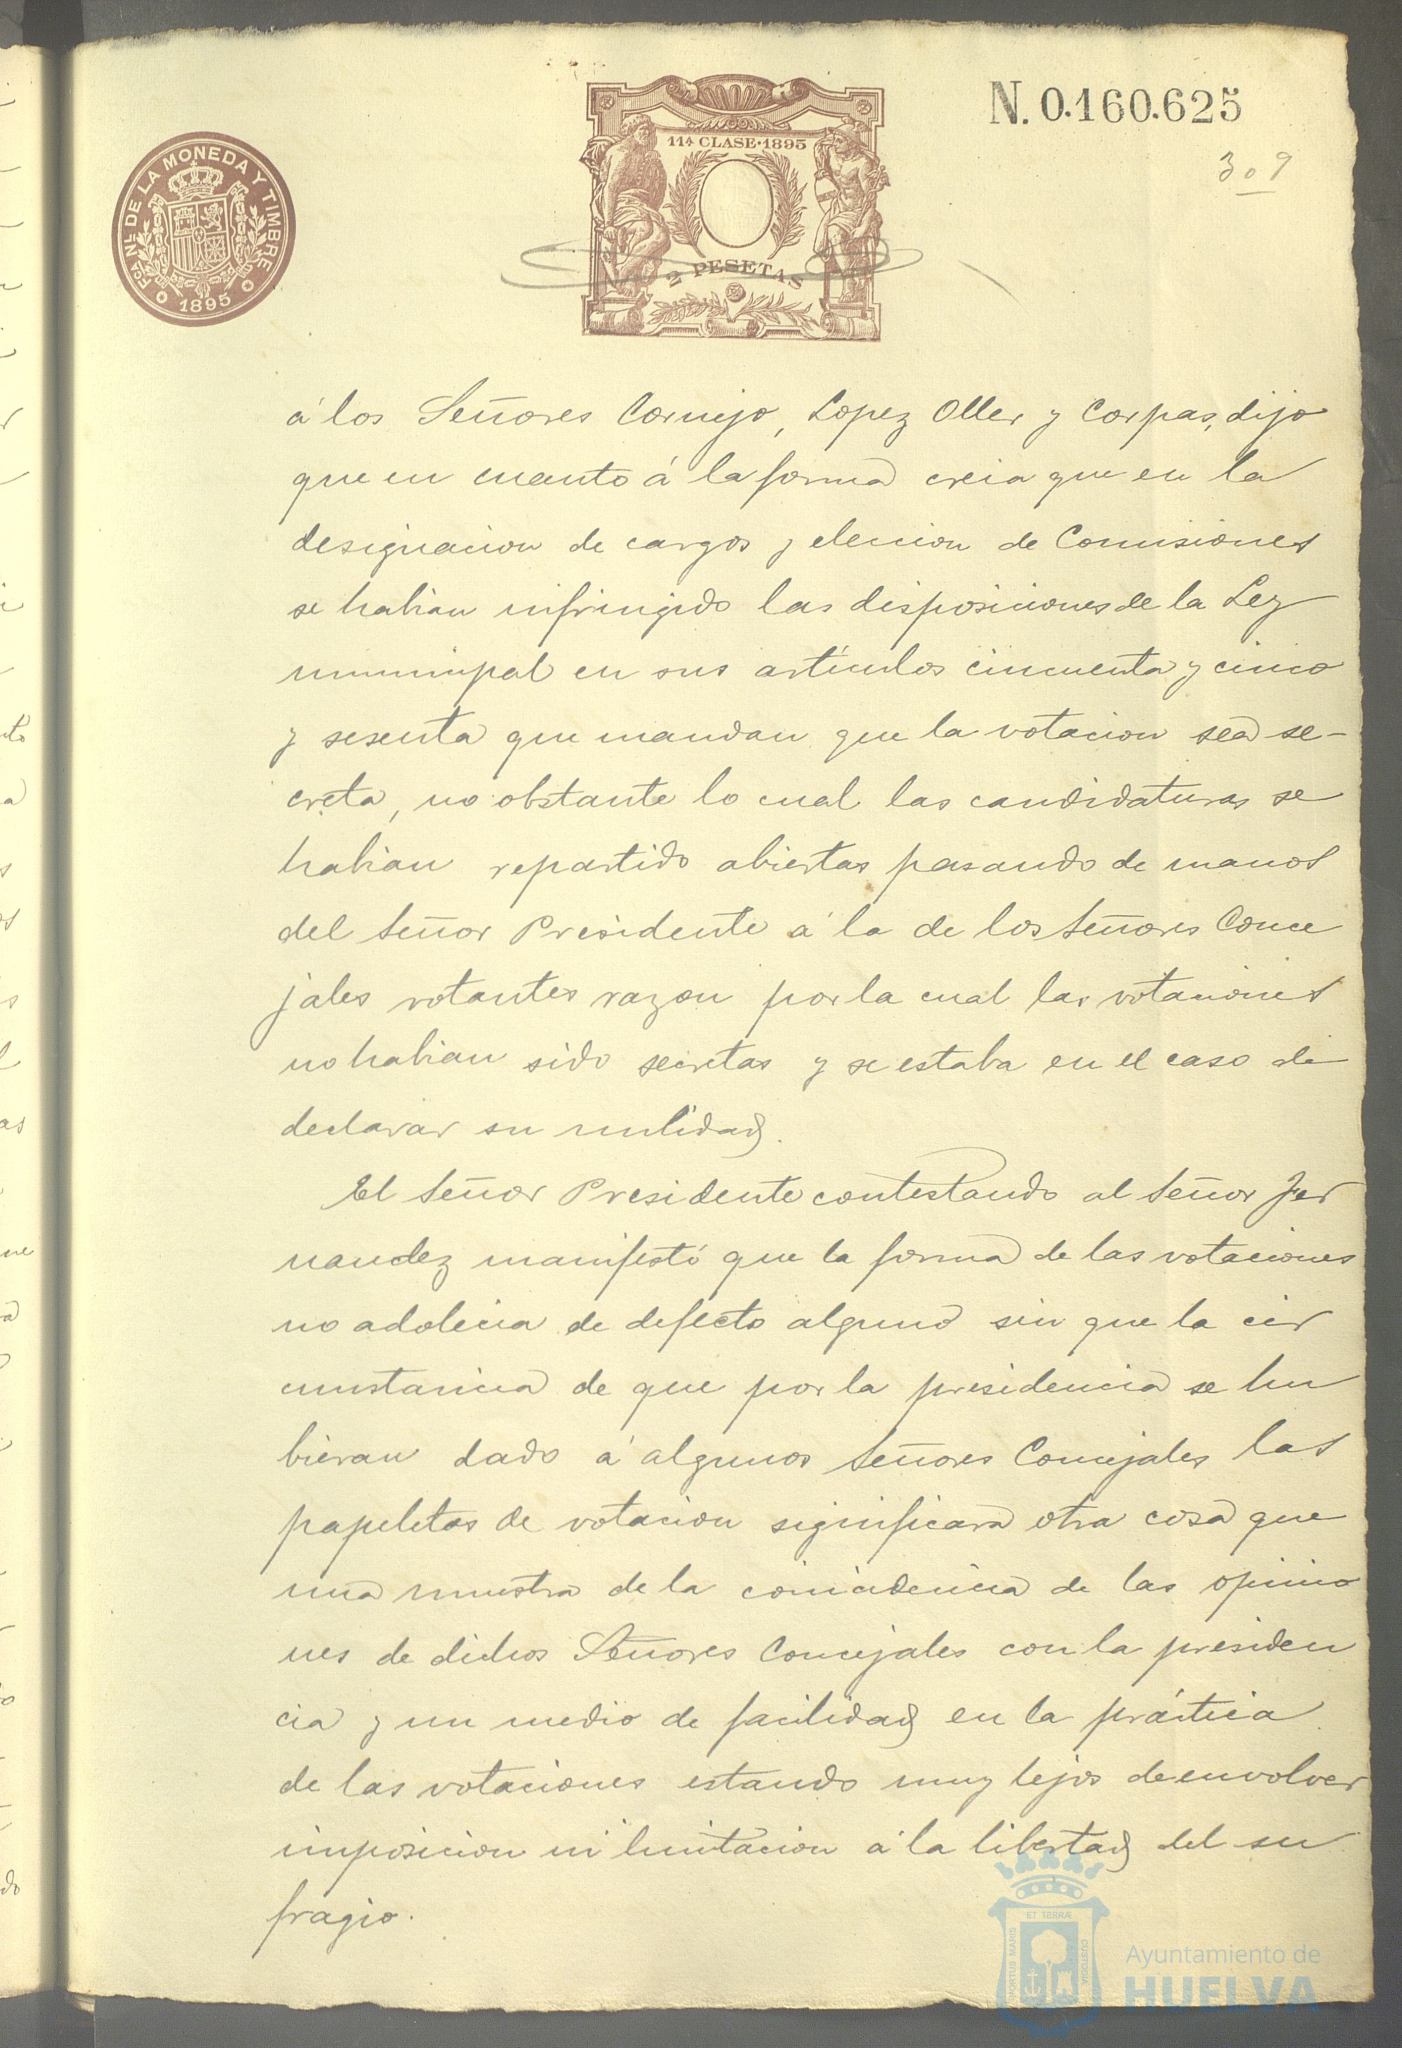 N. 0.160.625
309
FCA NL DE LA MONEDA Y TIMBRE
1895
11ª CLASE · 1895
2 PESETAS
á los Señores Cornejo, Lopez Oller y Corpas, dijo
que en cuanto á la forma creia que en la
designacion de cargos y eleccion de Comisiones
se habian infringido las disposiciones de la Ley
municipal en sus artículos cincuenta y cinco
y sesenta que mandan que la votacion sea se-
creta, no obstante lo cual las candidaturas se
habian repartido abiertas pasando de manos
del Señor Presidente á la de los Señores Conce
jales votantes razon por la cual las votaciones
no habian sido secretas y se estaba en el caso de
declarar su nulidad.
El Señor Presidente contestando al Señor Fer
nandez manifestó que la forma de las votaciones
no adolecia de defecto alguno sin que la cir
cunstancia de que por la presidencia se hu
bieran dado á algunos Señores Concejales las
papeletas de votacion significara otra cosa que
una muestra de la coincidencia de las opinio
nes de dichos Señores Concejales con la presiden
cia y un medio de facilidad en la práctica
de las votaciones estando muy lejos de envolver
imposicion ni limitacion á la libertad del su
fragio.
PORTUS MARIS ET TERRÆ CUSTODIA
Ayuntamiento de
HUELVA